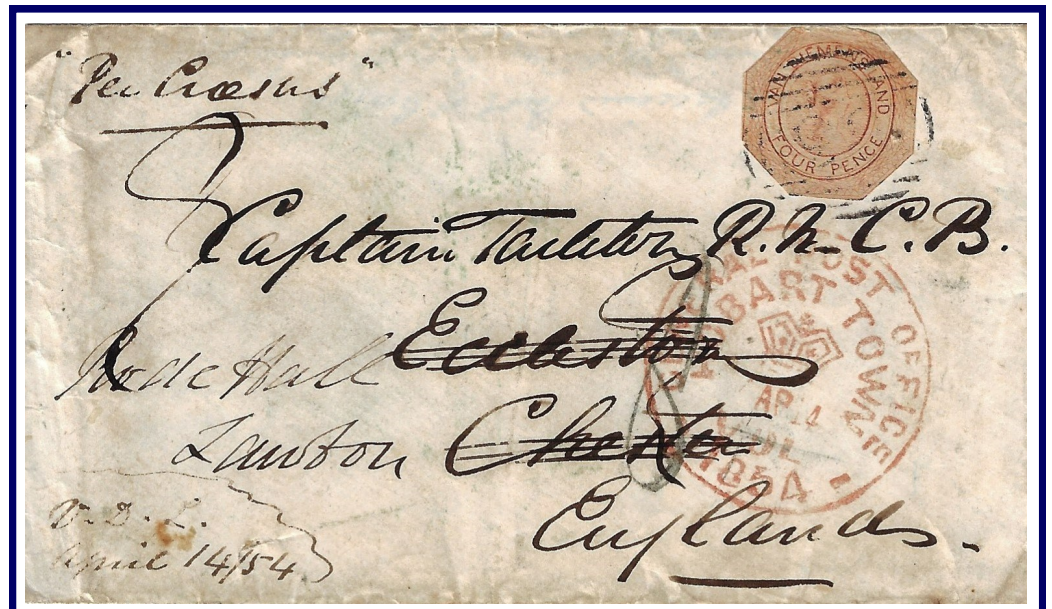 "Per Croesus"
VAN DIEMENS LAND
FOUR PENCE
Captain Tarleton R.N. C.B.
Eccleston
Rode Hall
Lawton Chester
England.
GENERAL POST OFFICE
HOBART TOWN
AP 14
1854
V. D. L.
April 14/54.